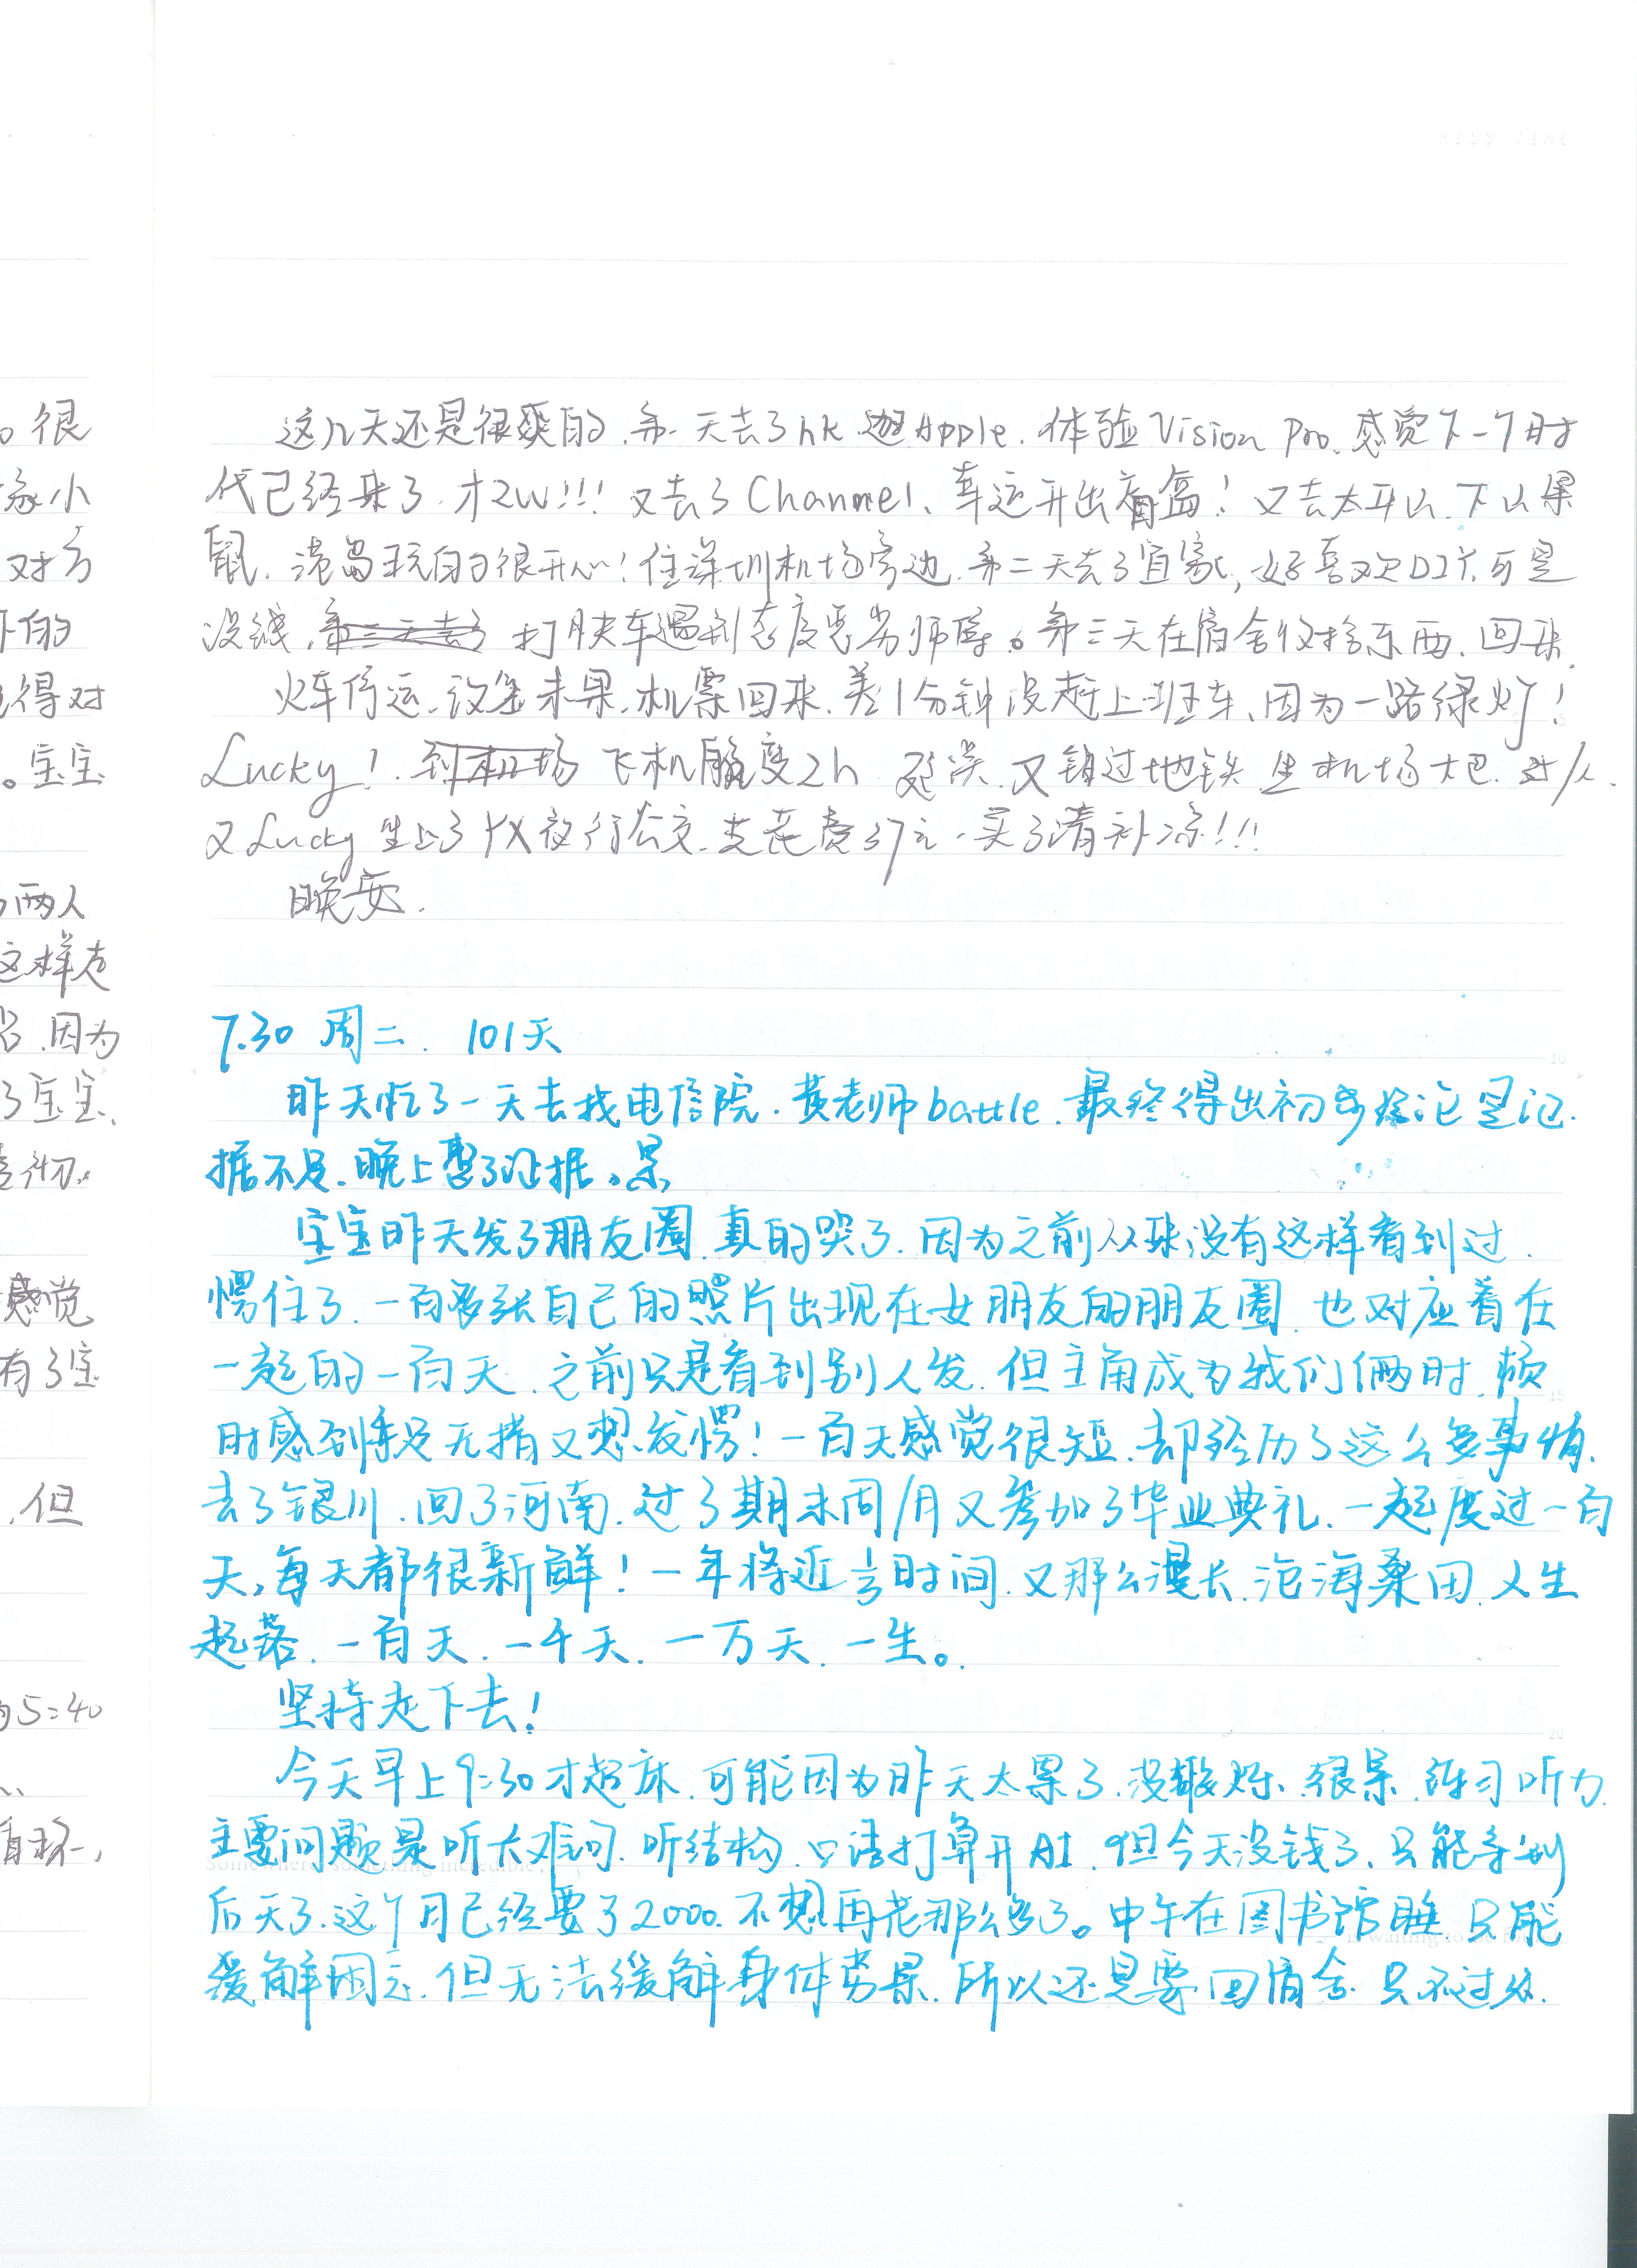 这几天还是很爽的.第一天去了hk.逛Apple.体验Vision Pro.感觉下一个时
代已经来了.才2W!!!又去了Channel、幸运开出盲盒!又去太平山.下山累
鼠.港岛玩的很开心!住深圳机场旁边.第二天去了宜家,好喜欢DIY.可是
没钱.打快车遇到态度恶劣师傅。第三天在宿舍收拾东西.回来.
火车停运.改签未果.机票回来.差1分钟没赶上班车、因为一路绿灯!
Lucky!.飞机2h 延误.又错过地铁 坐机场大巴.
又Lucky 坐上了夜行公交.共花费37元.买了清补凉!!!
晚安.
7.30 周二. 101天
昨天忙了一天去找电信院.黄老师battle.最终得出初步结论是证.
据不足.晚上整了证据。累
宝宝昨天发了朋友圈.真的哭了.因为之前从来没有这样看到过.
愣住了.一百多张自己的照片出现在女朋友的朋友圈.也对应着在
一起的一百天.之前只是看到别人发.但主角成为我们俩时.顿
时感到手足无措又想发愣!一百天感觉很短.却经历了这么多事情.
去了银川.回了河南.过了期末周/月又参加了毕业典礼.一起度过一百
天,每天都很新鲜!一年将近1/3时间.又那么漫长.沧海桑田.人生
起落.一百天.一千天.一万天.一生。
坚持走下去!
今天早上9:30才起床.可能因为昨天太累了.没锻炼、很累.练习听力.
主要问题是听太难词.听结构.口语打算开AI.但今天没钱了、只能等到
后天了.这个月已经要了2000.不想再花那么多了。中午在图书馆睡 只能
缓解困意.但无法缓解身体劳累.所以还是要回宿舍.只不过
很
小
对方
下的
得对
。宝宝
两人
这样走
.因为
了宝宝、
感觉
有了宝
.但
5:40